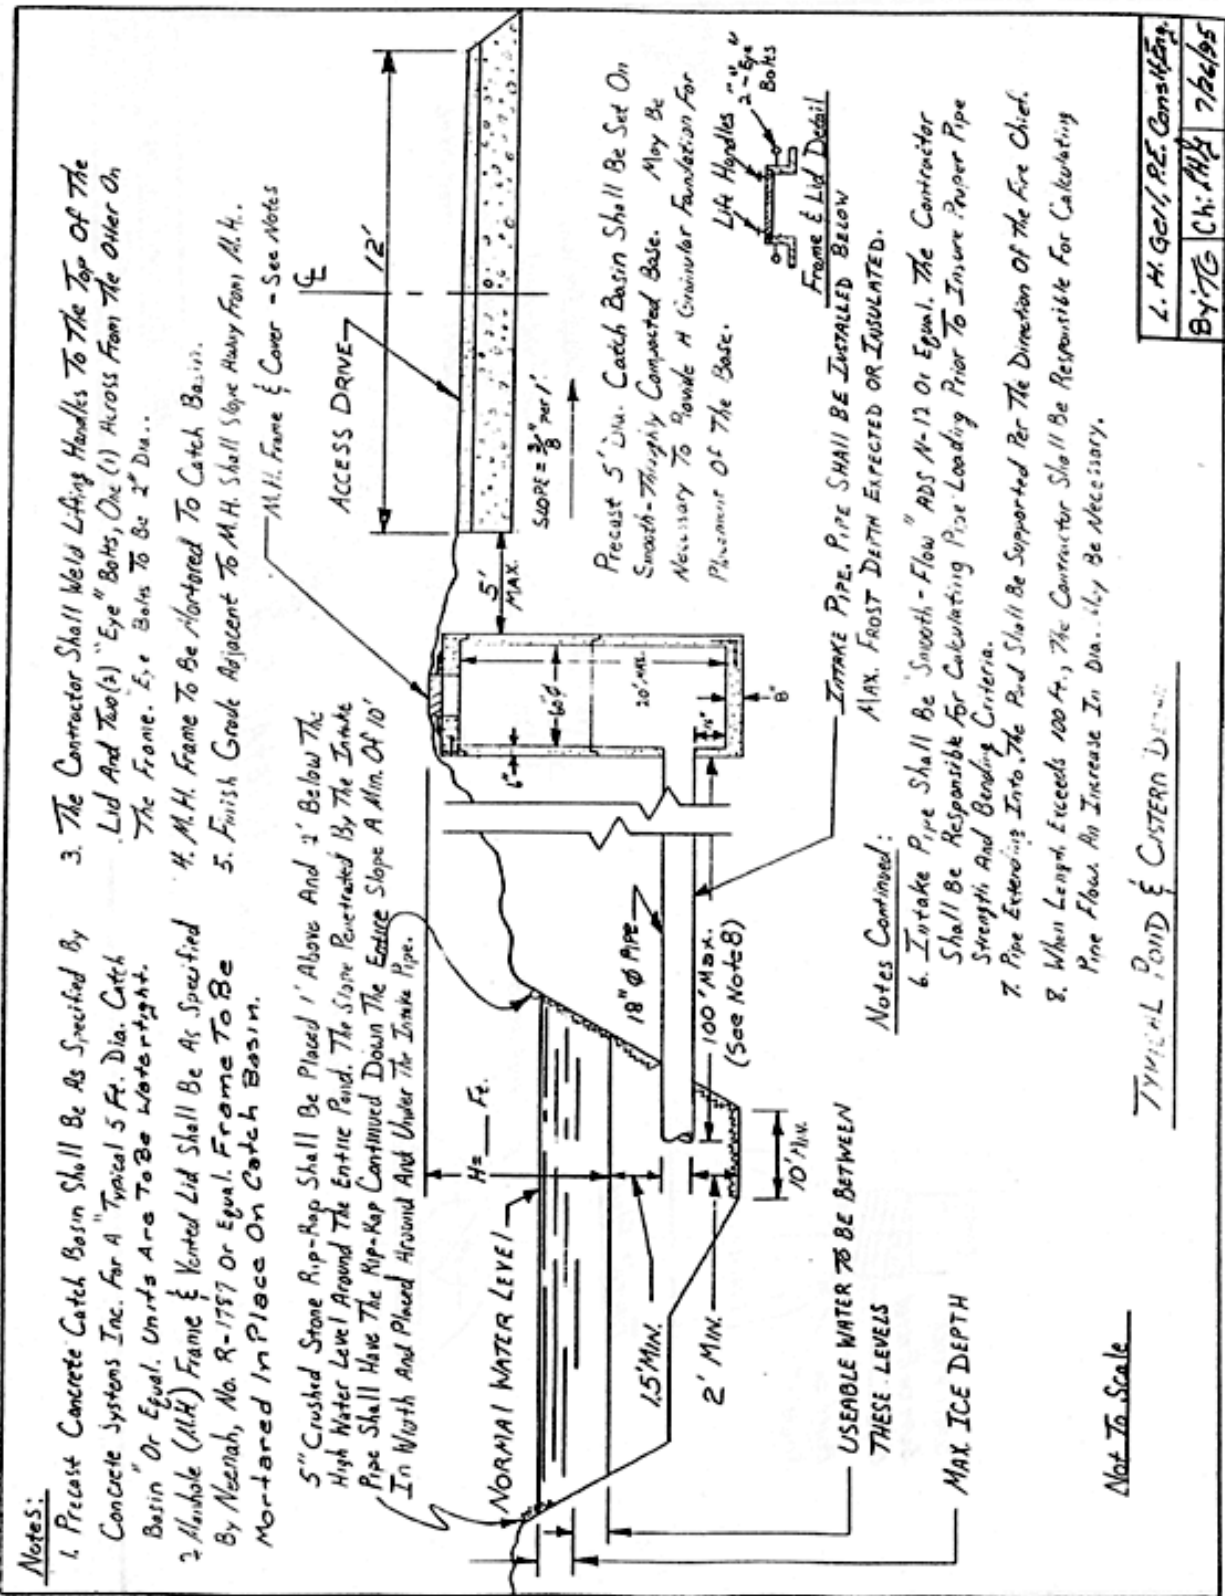 Notes:
1. Precast Concrete Catch Basin Shall Be As Specified By
Concrete Systems Inc. For A "Typical 5 Ft. Dia. Catch
Basin" Or Equal. Units Are To Be Watertight.
2 Manhole (M.H.) Frame & Vented Lid Shall Be As Specified
By Neenah, No. R-1787 Or Equal. Frame To Be
Mortared In Place On Catch Basin.
3. The Contractor Shall Weld Lifting Handles To The Top Of The
Lid And Two (2) "Eye" Bolts, One (1) Across From The Other On
The Frame. Eye Bolts To Be 2" Dia..
4. M.H. Frame To Be Mortored To Catch Basin.
5. Finish Grade Adjacent To M.H. Shall Slope Away From M.H..
5" Crushed Stone Rip-Rap Shall Be Placed 1' Above And 2' Below The
High Water Level Around The Entire Pond. The Slope Penetrated By The Intake
Pipe Shall Have The Rip-Rap Continued Down The Entire Slope A Min. Of 10'
In Width And Placed Around And Under The Intake Pipe.
M.H. Frame & Cover - See Notes
ACCESS DRIVE
℄
12'
NORMAL WATER LEVEL
H= ___ Ft.
5'
MAX.
SLOPE = 3/8" per 1'
6"
60" Ø
20' MAX.
8"
18" Ø PIPE
100' Max.
(See Note 8)
1.5' MIN.
2' MIN.
10' MIN.
Precast 5' Dia. Catch Basin Shall Be Set On
Smooth-Throughly Compacted Base. May Be
Necessary To Provide A Granular Foundation For
Placement Of The Base.
Lift Handles
2 - "Eye"
Bolts
Frame & Lid Detail
USEABLE WATER TO BE BETWEEN
THESE LEVELS
MAX. ICE DEPTH
INTAKE PIPE. PIPE SHALL BE INSTALLED BELOW
MAX. FROST DEPTH EXPECTED OR INSULATED.
Notes Continued:
6. Intake Pipe Shall Be "Smooth-Flow" ADS N-12 Or Equal. The Contractor
Shall Be Responsible For Calculating Pipe Loading Prior To Insure Proper Pipe
Strength And Bending Criteria.
7. Pipe Extending Into The Pond Shall Be Supported Per The Direction Of The Fire Chief.
8. When Length Exceeds 100 Ft., The Contractor Shall Be Responsible For Calculating
Pipe Flow. An Increase In Dia. May Be Necessary.
Not To Scale
TYPICAL POND & CISTERN
By: TG
7/26/95